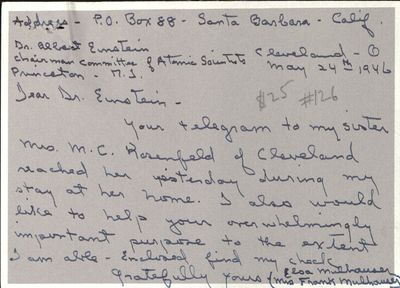 Address - P.O. Box 88 - Santa Barbara - Calif.
Dr. Albert Einstein
Chairman Committee of Atomic Scientists
Cleveland - O
Princeton - N.J.
May 24th 1946
Dear Dr. Einstein -
$25 #126
Your telegram to my sister
Mrs. M.C. Rosenfeld of Cleveland
reached her yesterday during my
stay at her home. I also would
like to help your overwhelmingly
important purpose to the extent
I am able - Enclosed find my check
Gratefully yours Mulhauser
(Mrs Frank Mulhauser)